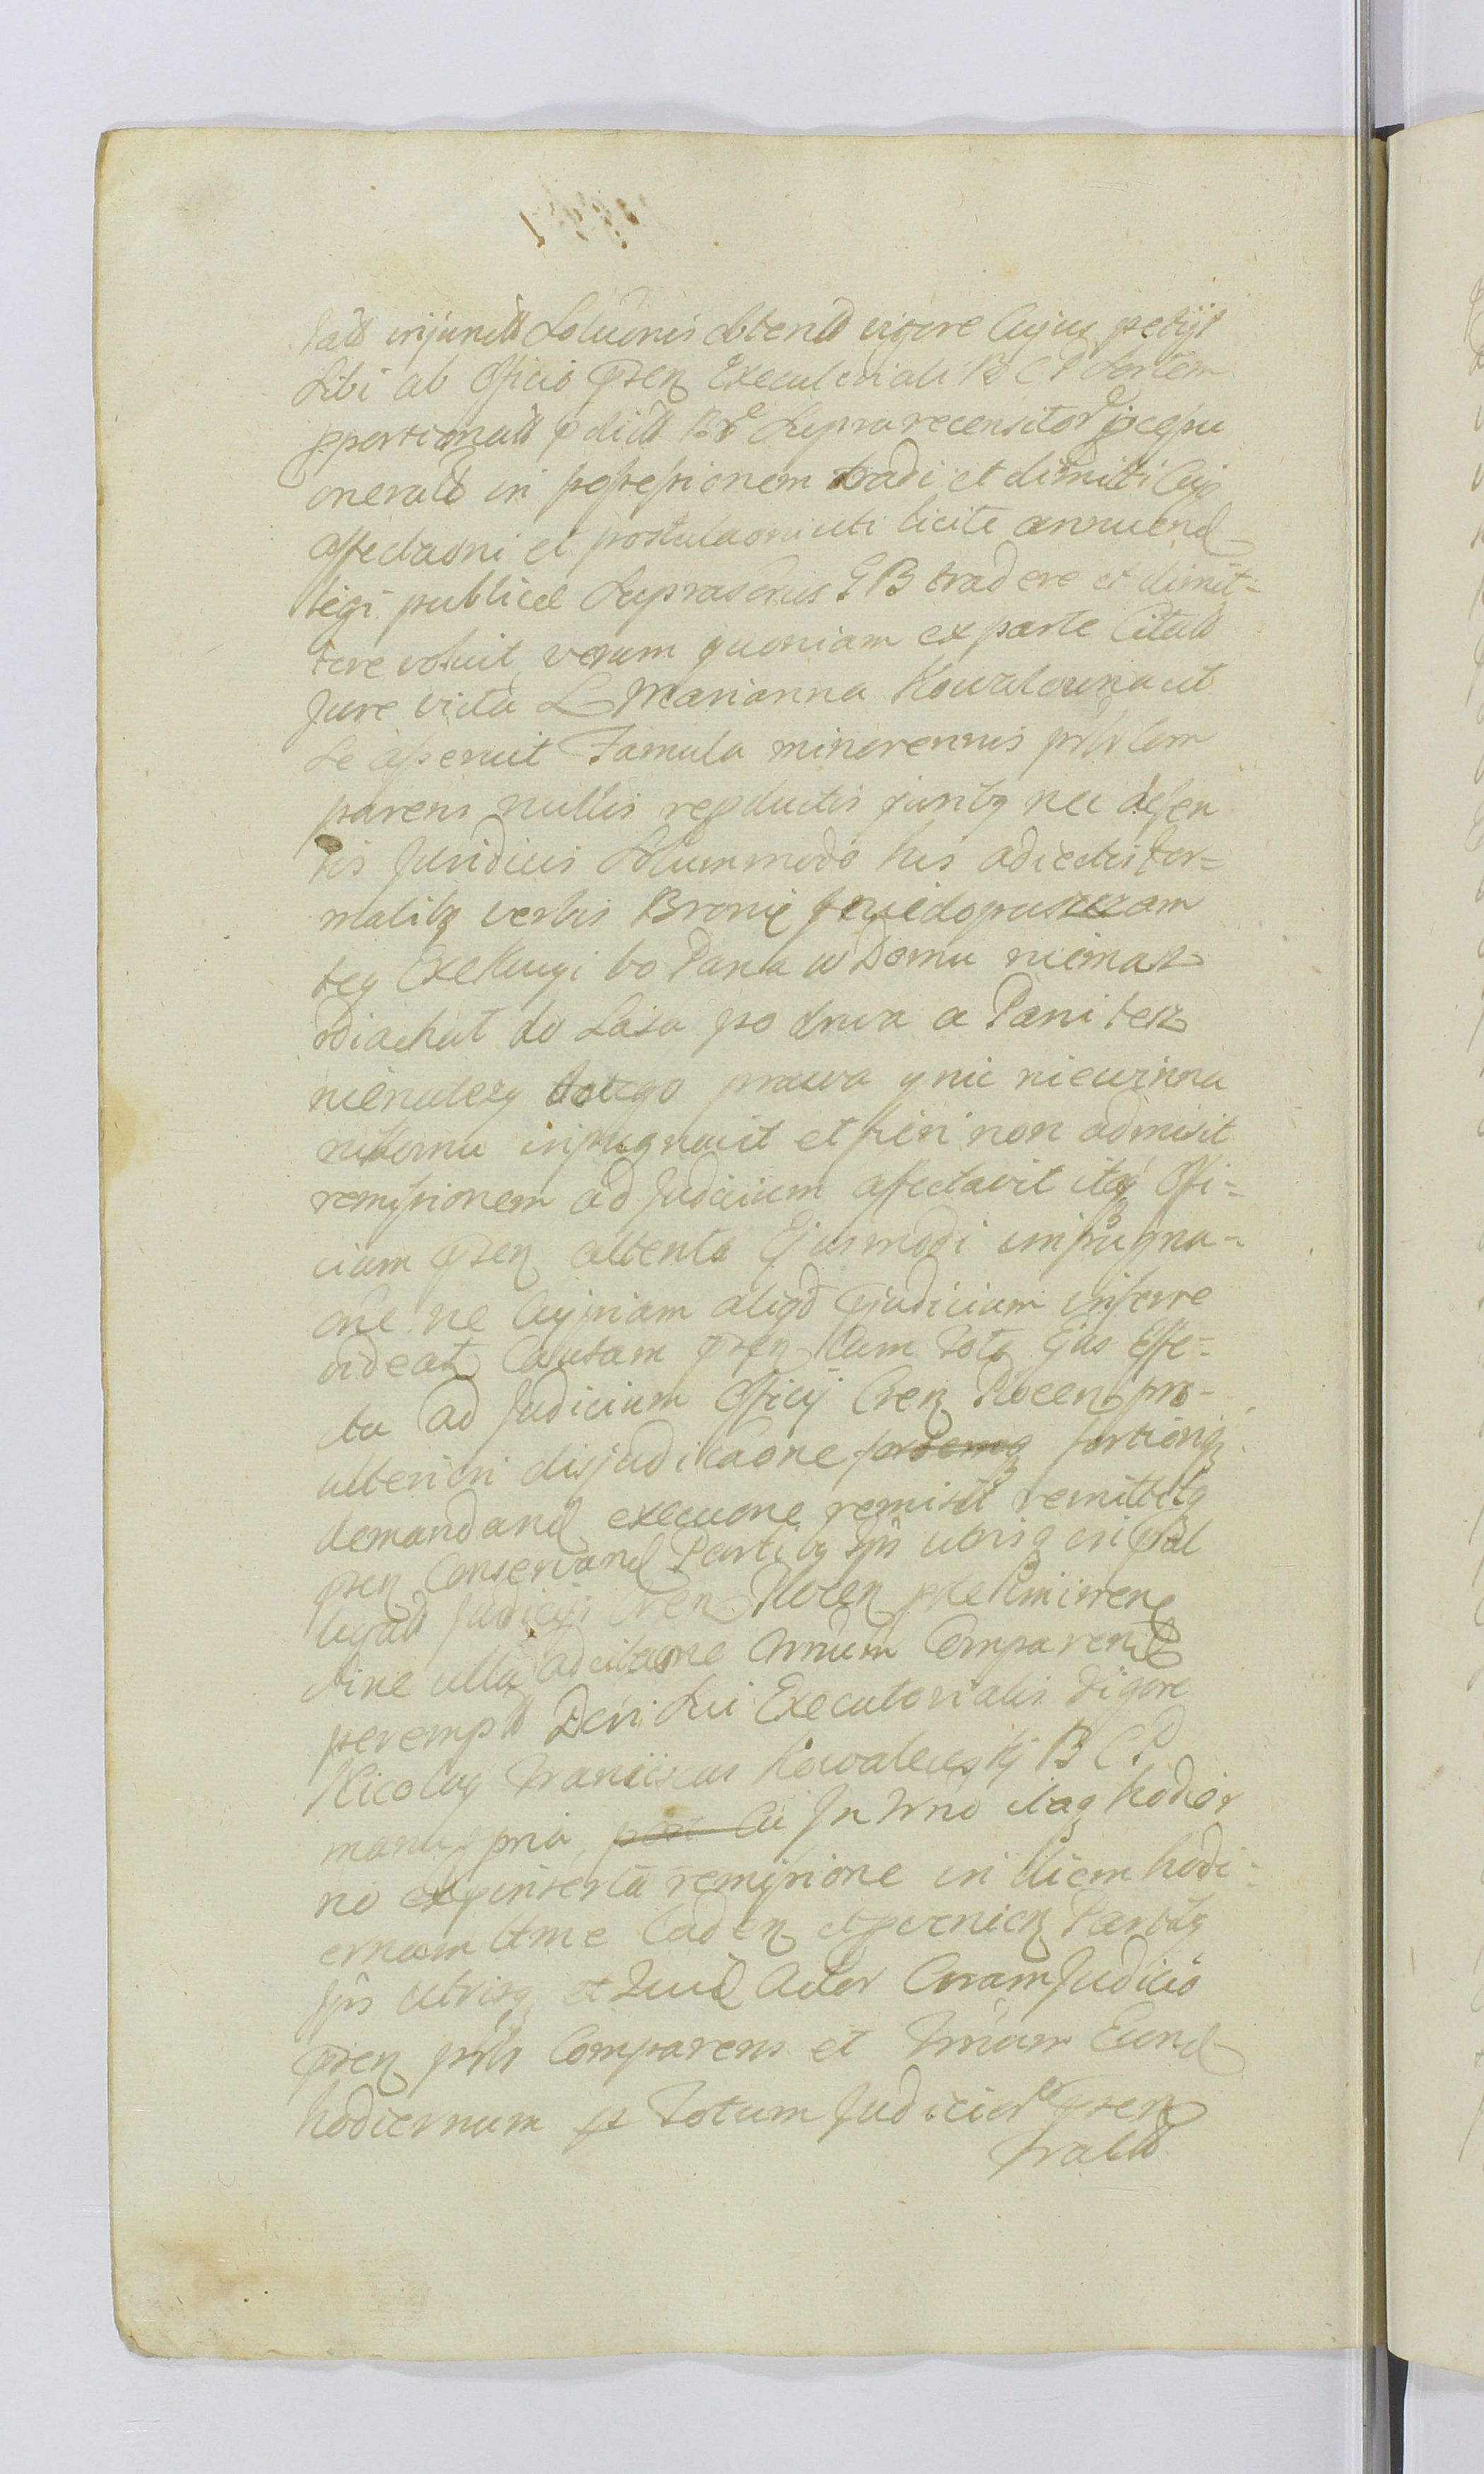 injunctt Soluonis obtentt vigore Cujus petijt
Sibi ab Officio prsen Executoriali B C P Sortem
pportionatt pdictt Br Supra recensitor
oneratt in possessionem tradi et dimitti Cujo
affectaoni et postulaoni uti licite annuend
legi publicae Suprascrius G B tradere et dimit-
tere voluit, verum quoniam ex parte Citatt
Jure victa L Marianna Kowalewna ut
Se asseruit Famula minorennis prtr com
parens nullis repductis juribq nec
tis Juridicis Solummodo his adiectis for-
malibq verbis Bronię y niedopuszczam
tey Exekucyi bo Pana w Domu niemasz
odiachał do Lasa po drwa a Pani tesz
nienalezy dotego prawa y nic niewinna
nikomu inpugnavit et fieri non admisit
remissionem ad Judicium affectavit itaq Offi-
cium prsen attenta Ejusmodi impugna-
one ne Cujpiam aliqd pjudicium inferre
videatr Causam prsen Cum toto Ejus Effe-
ctu ad Judicium Officij Cren Plocen pro
ulteriori disjudicaone fortioriq
demandand execuone remisit remittitq
prsen Conservand Partibq ipis utrisq in
Judicij Cren Plocen
Sine ulla adcitaone trnum Comparend
perempt Dcri Sui Executorialis vigore
Nicolaq Franciscus Kowalewskj B C P
manu ppria, In trno itaq hodier
no ex pinserta remissione in diem hodi-
ernum Caden et pvenien Partibq
ipis utrisq Actor Coram Judicio
prsen prtr Comparens et trnum Eund
hodiernum p totum Judicior prsen
tratt